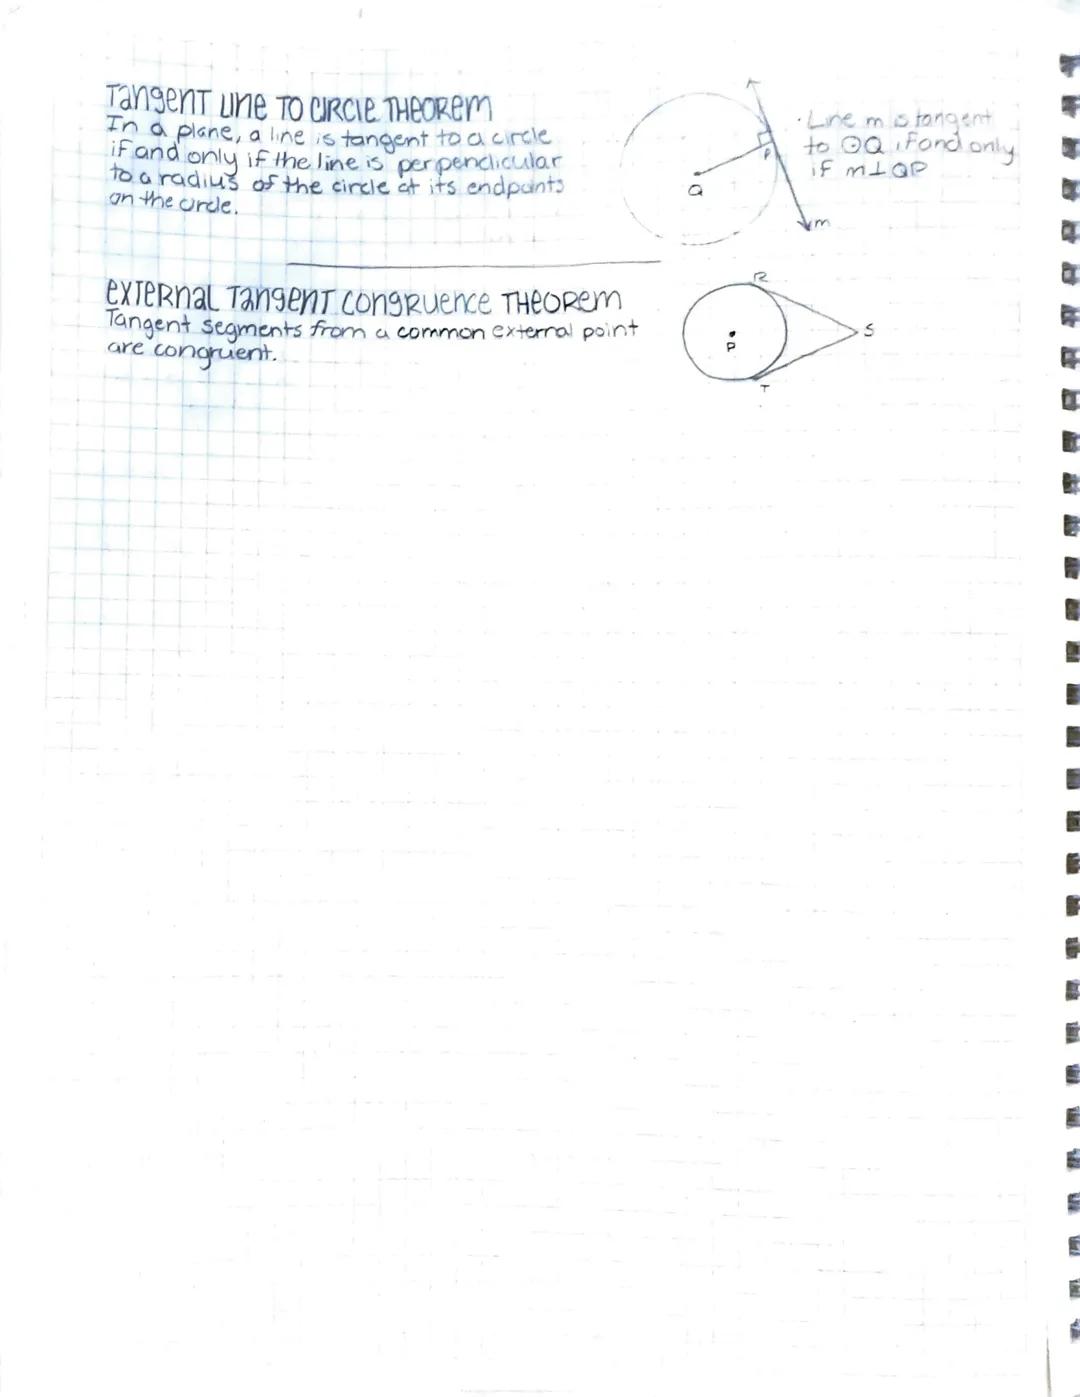 Tangent Line to Circle Theorem
In a plane, a line is tangent to a circle
if and only if the line is perpendicular
to a radius of the circle at its endpoints
on the circle.
P
Q
m
· Line m is tangent
to ⊙Q if and only
if m⊥QP
External Tangent Congruence Theorem
Tangent segments from a common external point
are congruent.
R
S
P
T